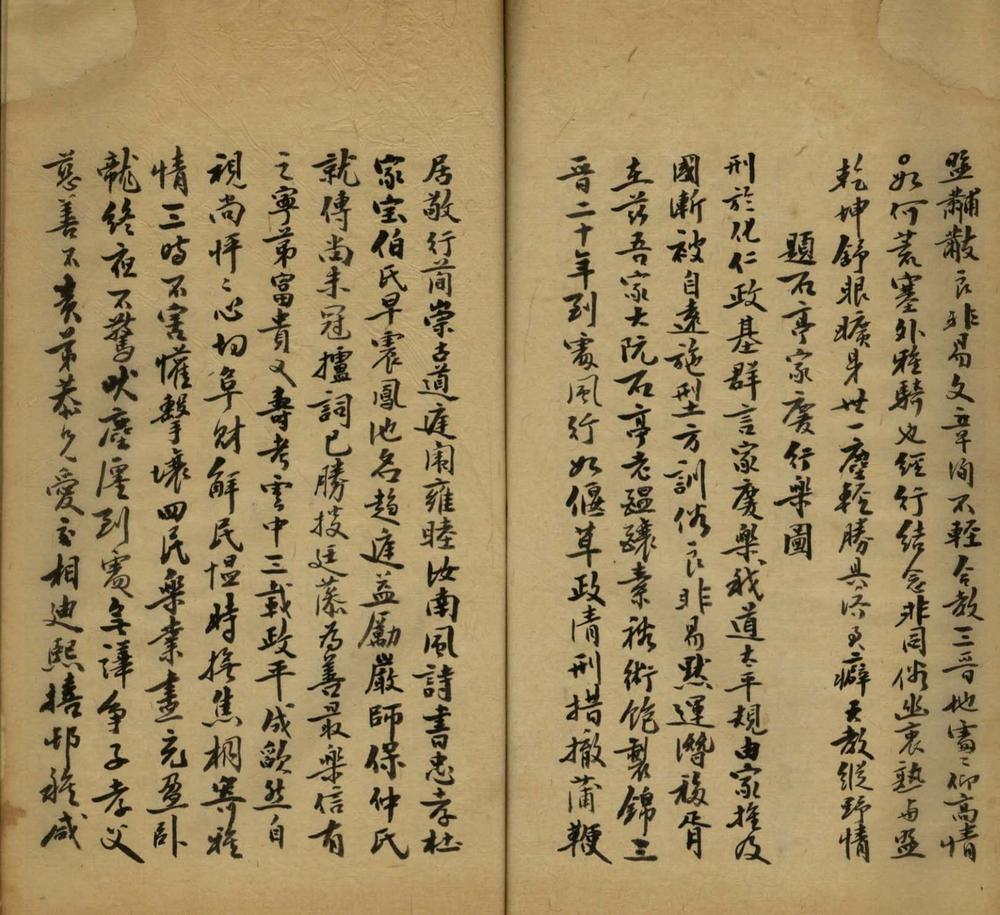 盟黼黻良非易文章洵不輕合教三晉地處處仰高情
如何荒塞外雅騎也經行結念非同俗幽衷熟與盟
乾坤舒眼曠身世一塵輕勝具濟勝癖天教縱野情
題石亭家慶行樂圖
刑於化仁政基群言家慶樂我道太平規由家推及
國漸被自遠施型方訓俗良非易默運潛移胥
在茲吾家大阮石亭老韞釀素裕術飽製錦三
晉二十年到處風行如偃草政清刑措撤蒲鞭
居敬行簡崇古道庭闈雍睦汝南風詩書忠孝杜
家宝伯氏早震鳳池名趨庭益勵嚴師保仲氏
就傅尚未冠攎詞已勝掞廷藻為善最樂信有
之寧第富貴又壽考雲中三載政平成歐然自
視尚怦怦心切阜財解民慍時撫焦桐寄雅
情三時不害懽擊壤四民樂業畫充盈臥
龍終夜不驚吠塵堰到處無譁爭子孝父
慈善不責弟恭兄愛互相迪熙攘邨稚咸